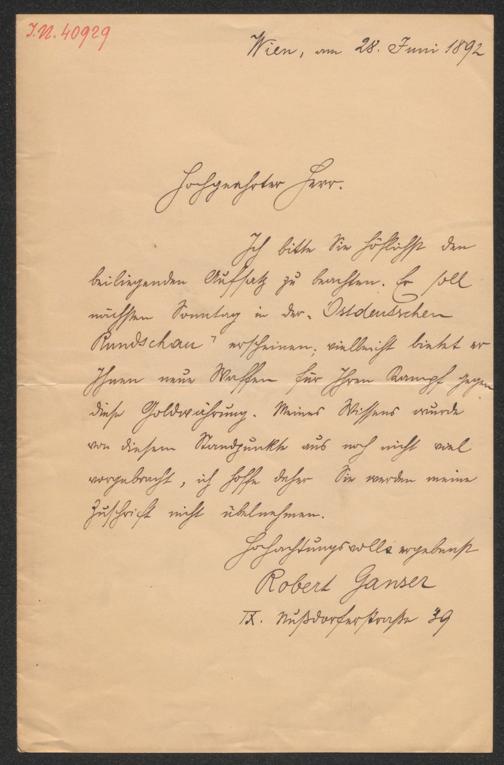 I.N. 40929
Wien, am 28. Juni 1892
Hochgeehrter Herr.
Ich bitte Sie höflichst den
beiliegenden Aufsatz zu beachten. Er soll
nächsten Sonntag in der „Ostdeutschen
Rundschau" erscheinen; vielleicht bietet er
Ihnen neue Waffen für Ihren Kampf gegen
diese Goldwährung. Meines Wissens wurde
von diesem Standpunkte aus noch nicht viel
vorgebracht, ich hoffe daher Sie werden meine
Zuschrift nicht übelnehmen.
Hochachtungsvollst ergebenst
Robert Ganser
IX. Nußdorferstraße 39